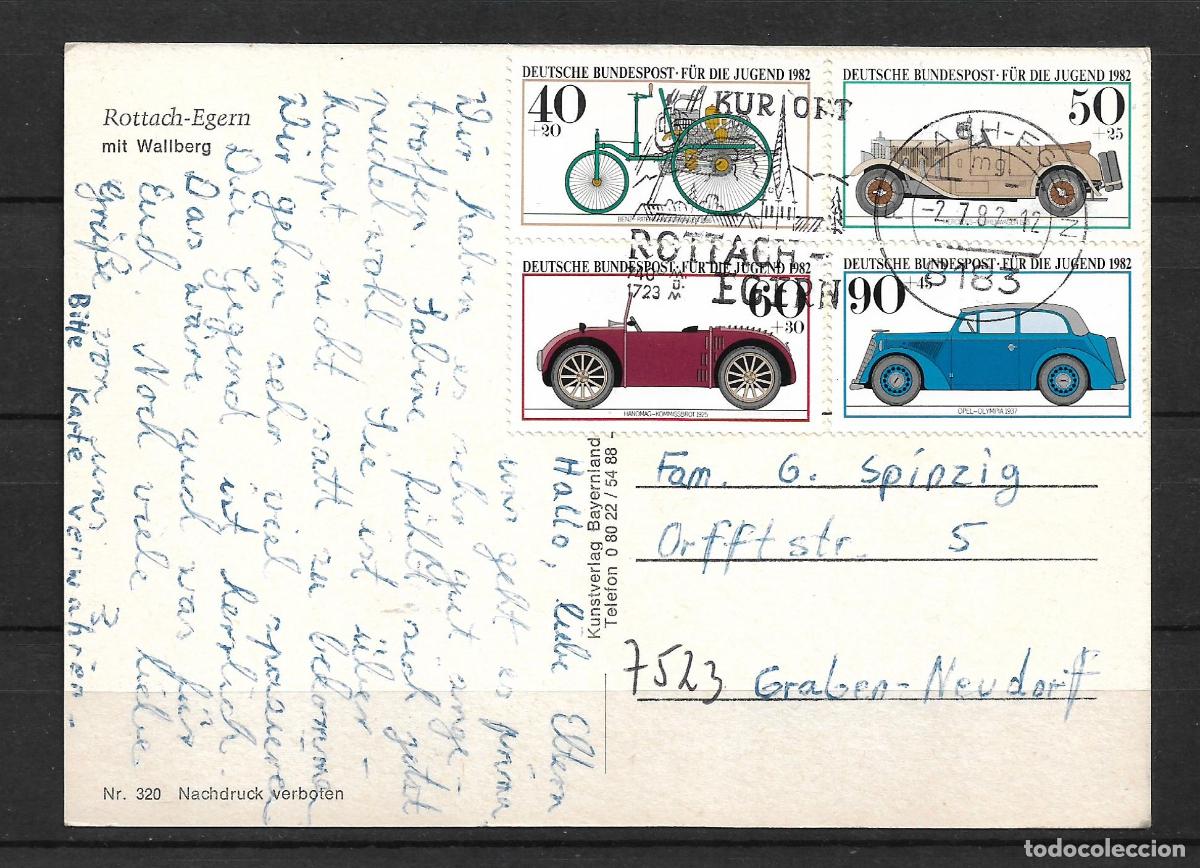 Rottach-Egern
mit Wallberg
DEUTSCHE BUNDESPOST · FÜR DIE JUGEND 1982
40
+20
DEUTSCHE BUNDESPOST · FÜR DIE JUGEND 1982
50
+25
DEUTSCHE BUNDESPOST · FÜR DIE JUGEND 1982
60
+30
HANOMAG-KOMMISSBROT 1925
DEUTSCHE BUNDESPOST · FÜR DIE JUGEND 1982
90
+45
OPEL-OLYMPIA 1937
KURORT
ROTTACH-
EGERN
740 m
ü.
1723 M
-2.7.82-12
8183
Hallo, liebe Eltern
uns geht es prima
Wir haben es sehr gut ange-
troffen. Sabine fühlt sich jetzt
pudel wohl. Sie ist über-
haupt nicht satt zu bekommen
Wir gehen sehr viel spazieren
Die Gegend ist herrlich.
Das wäre auch was für
Euch. Noch viele liebe
Grüße von uns 3
Bitte Karte verwahren.
Kunstverlag Bayernland
Telefon 0 80 22 / 54 88
Fam. G. Spinzig
Orfftstr. 5
7523 Graben-Neudorf
Nr. 320 Nachdruck verboten
todocoleccion